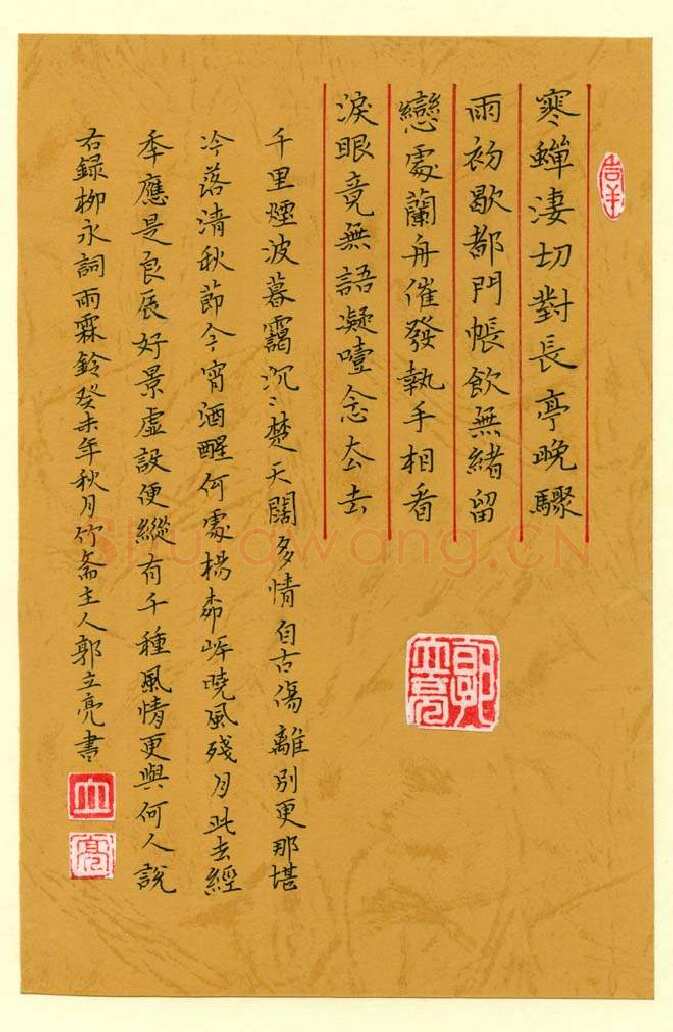 寒蟬淒切對長亭晚驟
雨初歇都門帳飲無緒留
戀處蘭舟催發執手相看
淚眼竟無語凝噎念去去
千里煙波暮靄沉〻楚天闊多情自古傷離別更那堪
冷落清秋節今宵酒醒何處楊柳岸曉風殘月此去經
年應是良辰好景虛設便縱有千種風情更與何人說
右録柳永詞雨霖鈴癸未年秋月竹齋主人郭立亮書
吉羊
郭立亮
立
亮